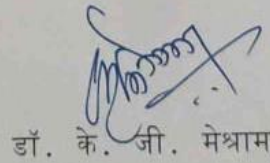 डॉ. के. जी. मेश्राम